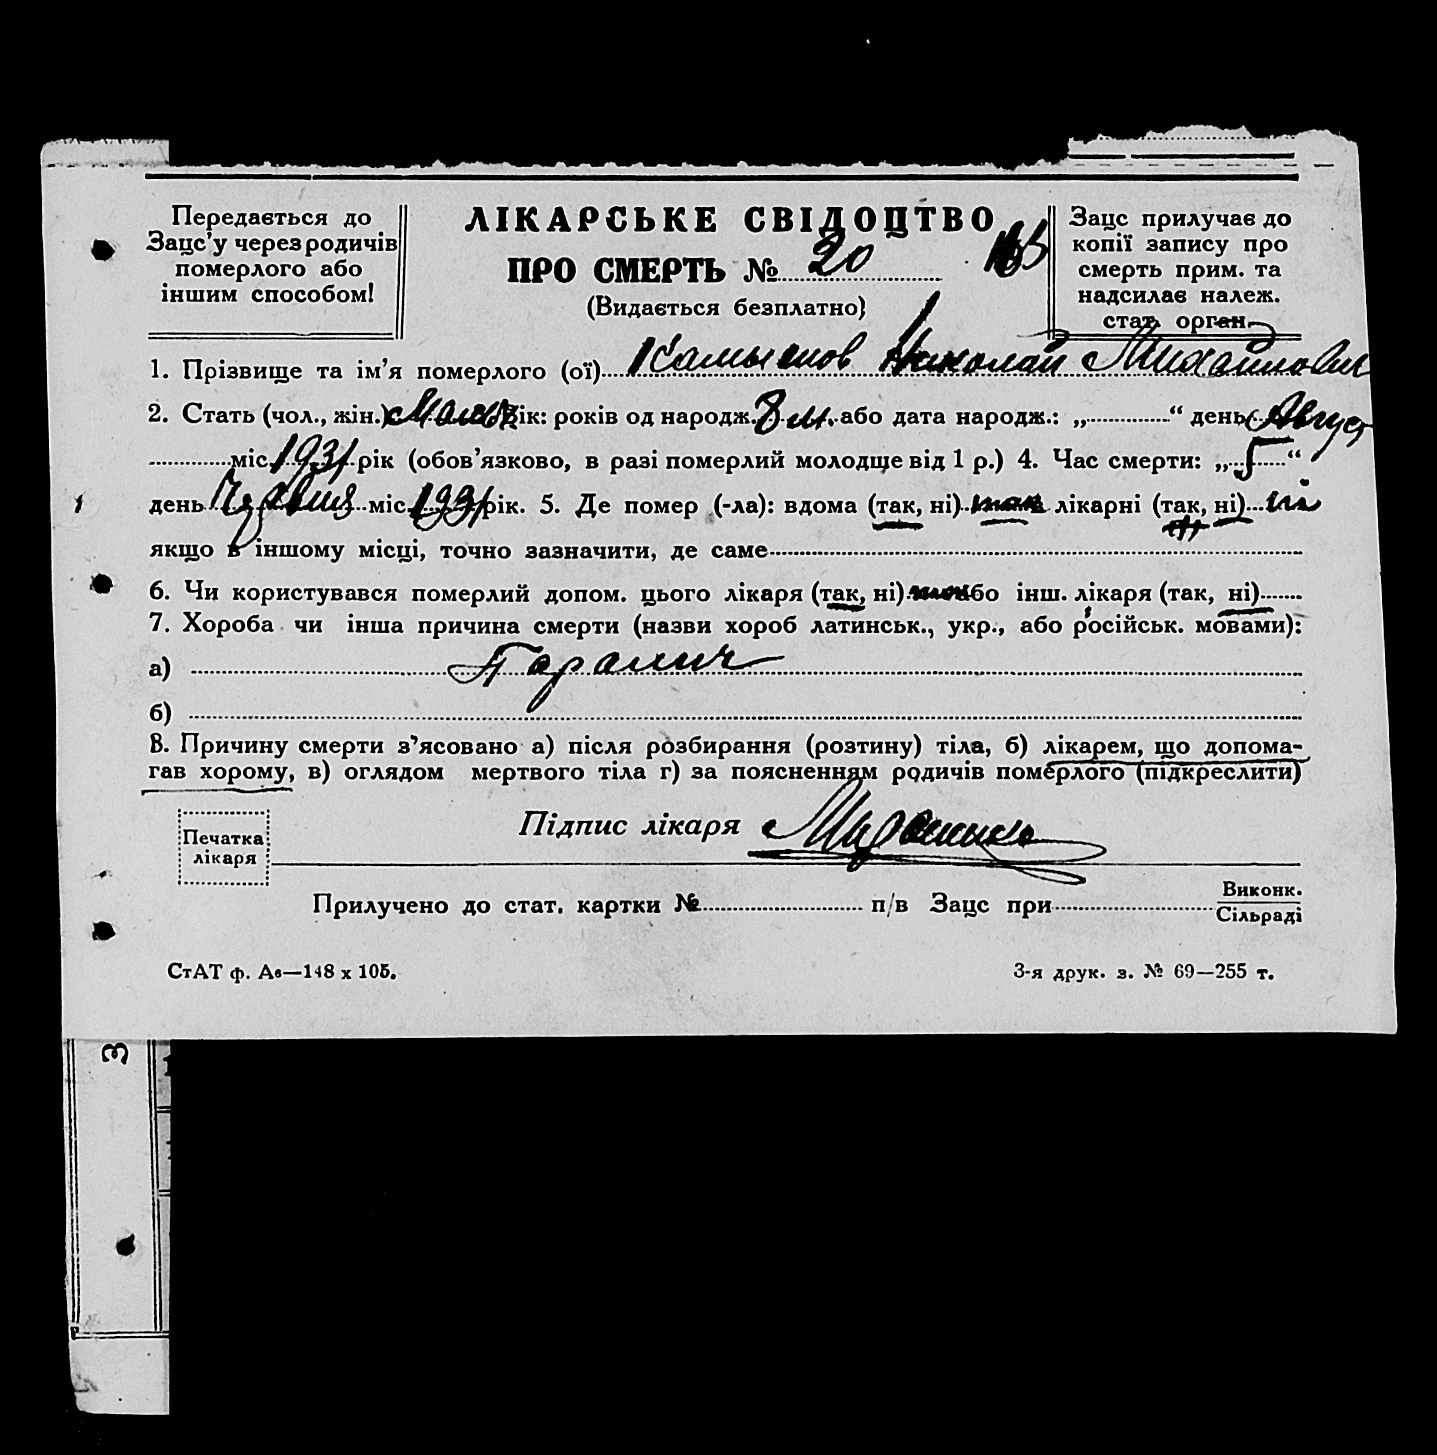 Передається до
Зацс'у через родичів
померлого або
іншим способом!
ЛІКАРСЬКЕ СВІДОЦТВО
ПРО СМЕРТЬ № 20
(Видається безплатно)
Зацс прилучає до
копії запису про
смерть прим. та
надсилає належ.
стат. орган.
1. Прізвище та ім'я померлого (ої) Камышов Николай Михайлович
2. Стать (чол., жін.) ік: років од народж. 8 м. або дата народж.: „ “ день Август
міс. 1931 рік (обов'язково, в разі померлий молодще від 1 р.) 4. Час смерти: „ 5 “
день міс. 1931 рік. 5. Де помер (-ла): вдома (так, ні) так лікарні (так, ні) ні
якщо в іншому місці, точно зазначити, де саме
6. Чи користувався померлий допом. цього лікаря (так, ні) так бо інш. лікаря (так, ні)
7. Хороба чи інша причина смерти (назви хороб латинськ., укр., або російськ. мовами):
а)
б)
8. Причину смерти з'ясовано а) після розбирання (розтину) тіла, б) лікарем, що допома-
гав хорому, в) оглядом мертвого тіла г) за поясненням родичів померлого (підкреслити)
Печатка
лікаря
Підпис лікаря
Прилучено до стат. картки № п/в Зацс при Виконк.
Сільраді
СтАТ ф. Ав—148 х 105.
3-я друк. з. № 69—255 т.
3